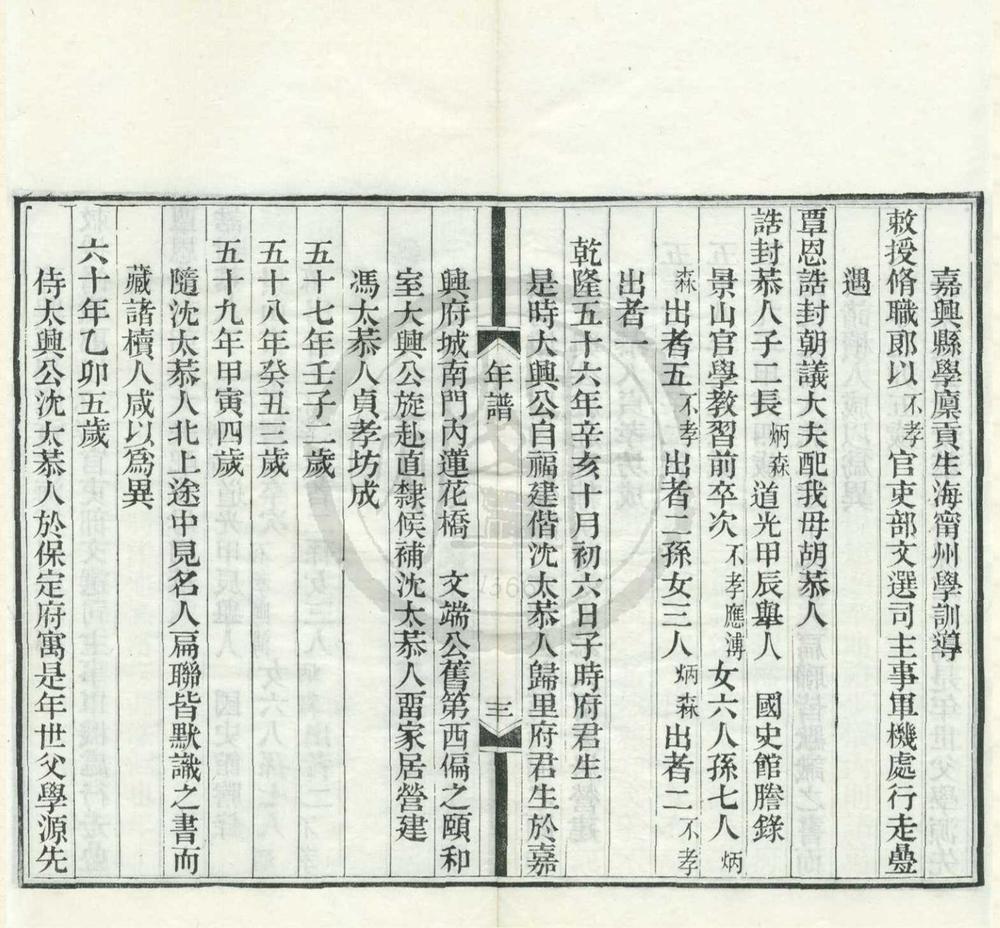 嘉興縣學廩貢生海甯州學訓導
敕授脩職郎以不孝官吏部文選司主事軍機處行走疊
遇
覃恩誥封朝議大夫配我母胡恭人
誥封恭人子二長炳森道光甲辰舉人　國史館謄錄
景山官學教習前卒次不孝應溥女六人孫七人炳
森出者五不孝出者二孫女三人炳森出者二不孝
出者一
乾隆五十六年辛亥十月初六日子時府君生
是時大興公自福建偕沈太恭人歸里府君生於嘉
年譜
三
興府城南門內蓮花橋　文端公舊第西偏之頤和
室大興公旋赴直隸候補沈太恭人畱家居營建
馮太恭人貞孝坊成
五十七年壬子二歲
五十八年癸丑三歲
五十九年甲寅四歲
隨沈太恭人北上途中見名人扁聯皆默識之書而
藏諸櫝人咸以爲異
六十年乙卯五歲
侍大興公沈太恭人於保定府寓是年世父學源先